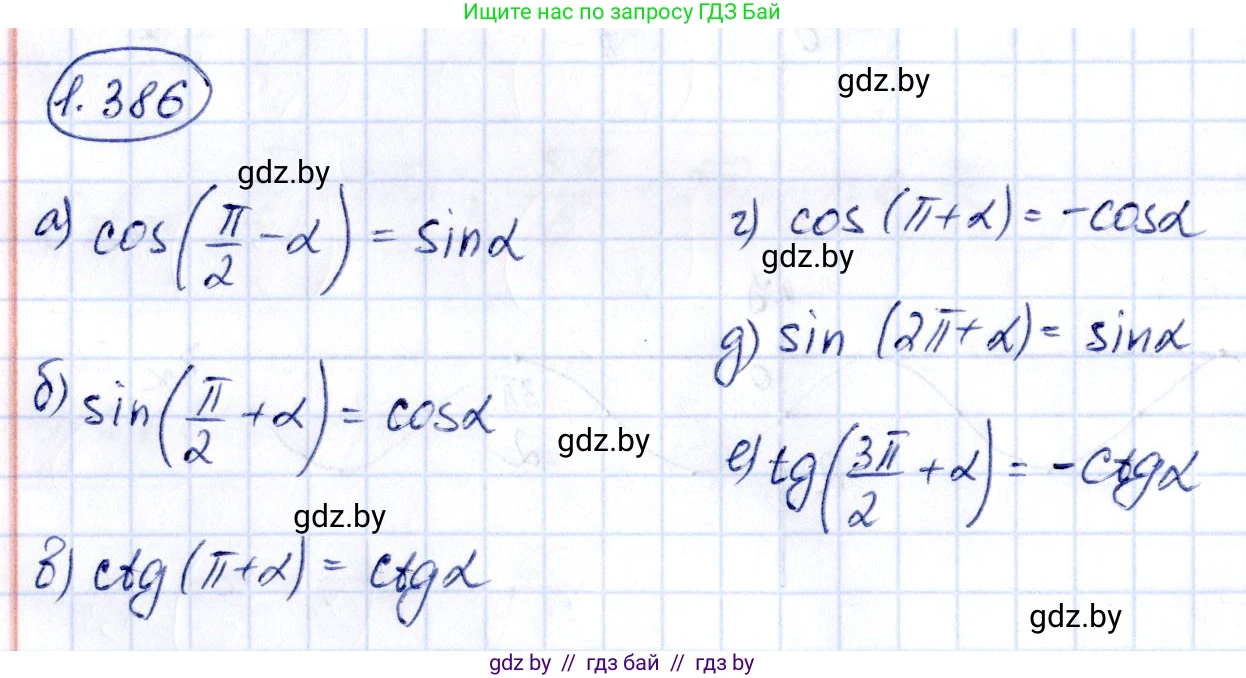 Ищите нас по запросу ГДЗ Бай
1.386
gdz.by
gdz.by
а) cos(π/2 - α) = sinα
г) cos (π+α) = -cosα
gdz.by
д) sin (2π+α) = sinα
б) sin(π/2 + α) = cosα
gdz.by
е) tg(3π/2 + α) = -ctgα
gdz.by
в) ctg (π+α) = ctgα
gdz.by
gdz by // гдз бай // гдз by